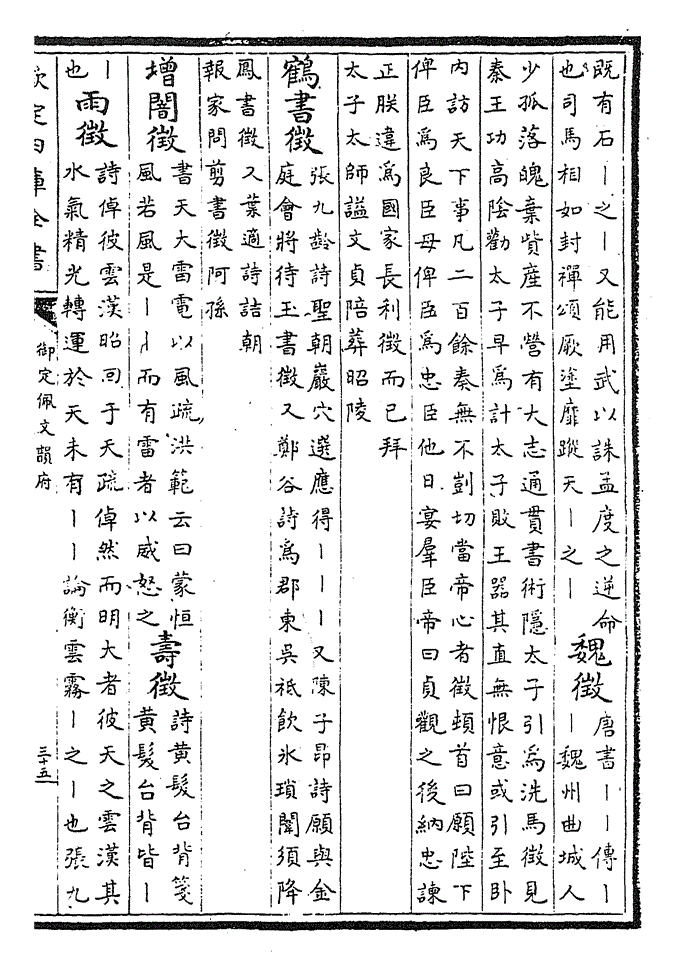 既有石丨之丨又能用武以誅孟度之逆命
也司馬相如封禪頌厥塗靡蹤天丨之丨
魏徵
唐書丨丨傳丨
丨魏州曲城人
少孤落魄棄貲產不營有大志通貫書術隱太子引為洗馬徵見
秦王功高陰勸太子早為計太子敗王器其直無恨意或引至卧
内訪天下事凡二百餘奏無不剴切當帝心者徵頓首曰願陛下
俾臣為良臣毋俾臣為忠臣他日宴羣臣帝曰貞觀之後納忠諫
正朕違為國家長利徵而已拜
太子太師諡文貞陪葬昭陵
鶴書徵
張九齡詩聖朝巖穴選應得丨丨丨又陳子昂詩願與金
庭會將待玉書徵又鄭谷詩為郡東吳祇飲氷瑣闈須降
鳳書徵又葉適詩詰朝
報家問剪書徵阿孫
增闇徵
書天大雷電以風疏洪範云曰蒙恒
風若風是丨丨而有雷者以威怒之
壽徵
詩黄髮台背箋
黄髮台背皆丨
丨
也
雨徵
詩倬彼雲漢昭回于天疏倬然而明大者彼天之雲漢其
水氣精光轉運於天未有丨丨論衡雲霧丨之丨也張九
欽定四庫全書
御定佩文韻府
三十五